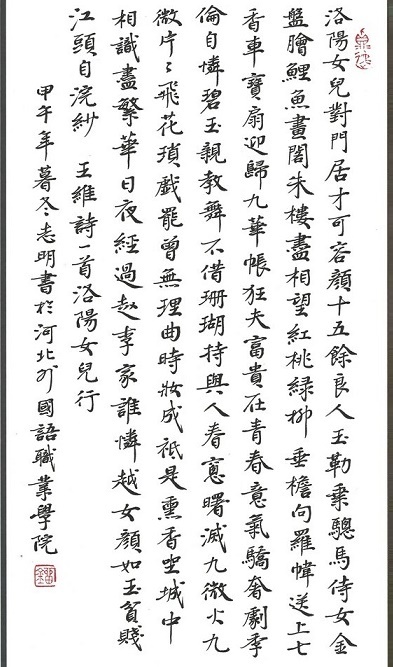 洛陽女兒對門居才可容顏十五餘良人玉勒乘驄馬侍女金
盤膾鯉魚畫閣朱樓盡相望紅桃綠柳垂檐向羅幃送上七
香車寶扇迎歸九華帳狂夫富貴在青春意氣驕奢劇季
倫自憐碧玉親教舞不借珊瑚持與人春窓曙滅九微火九
微片々飛花瑣戲罷曾無理曲時妝成祗是熏香坐城中
相識盡繁華日夜經過赵李家誰憐越女顏如玉貧賤
江頭自浣紗 王維詩一首洛陽女兒行
甲午年暮冬志明書於河北外國語職業學院